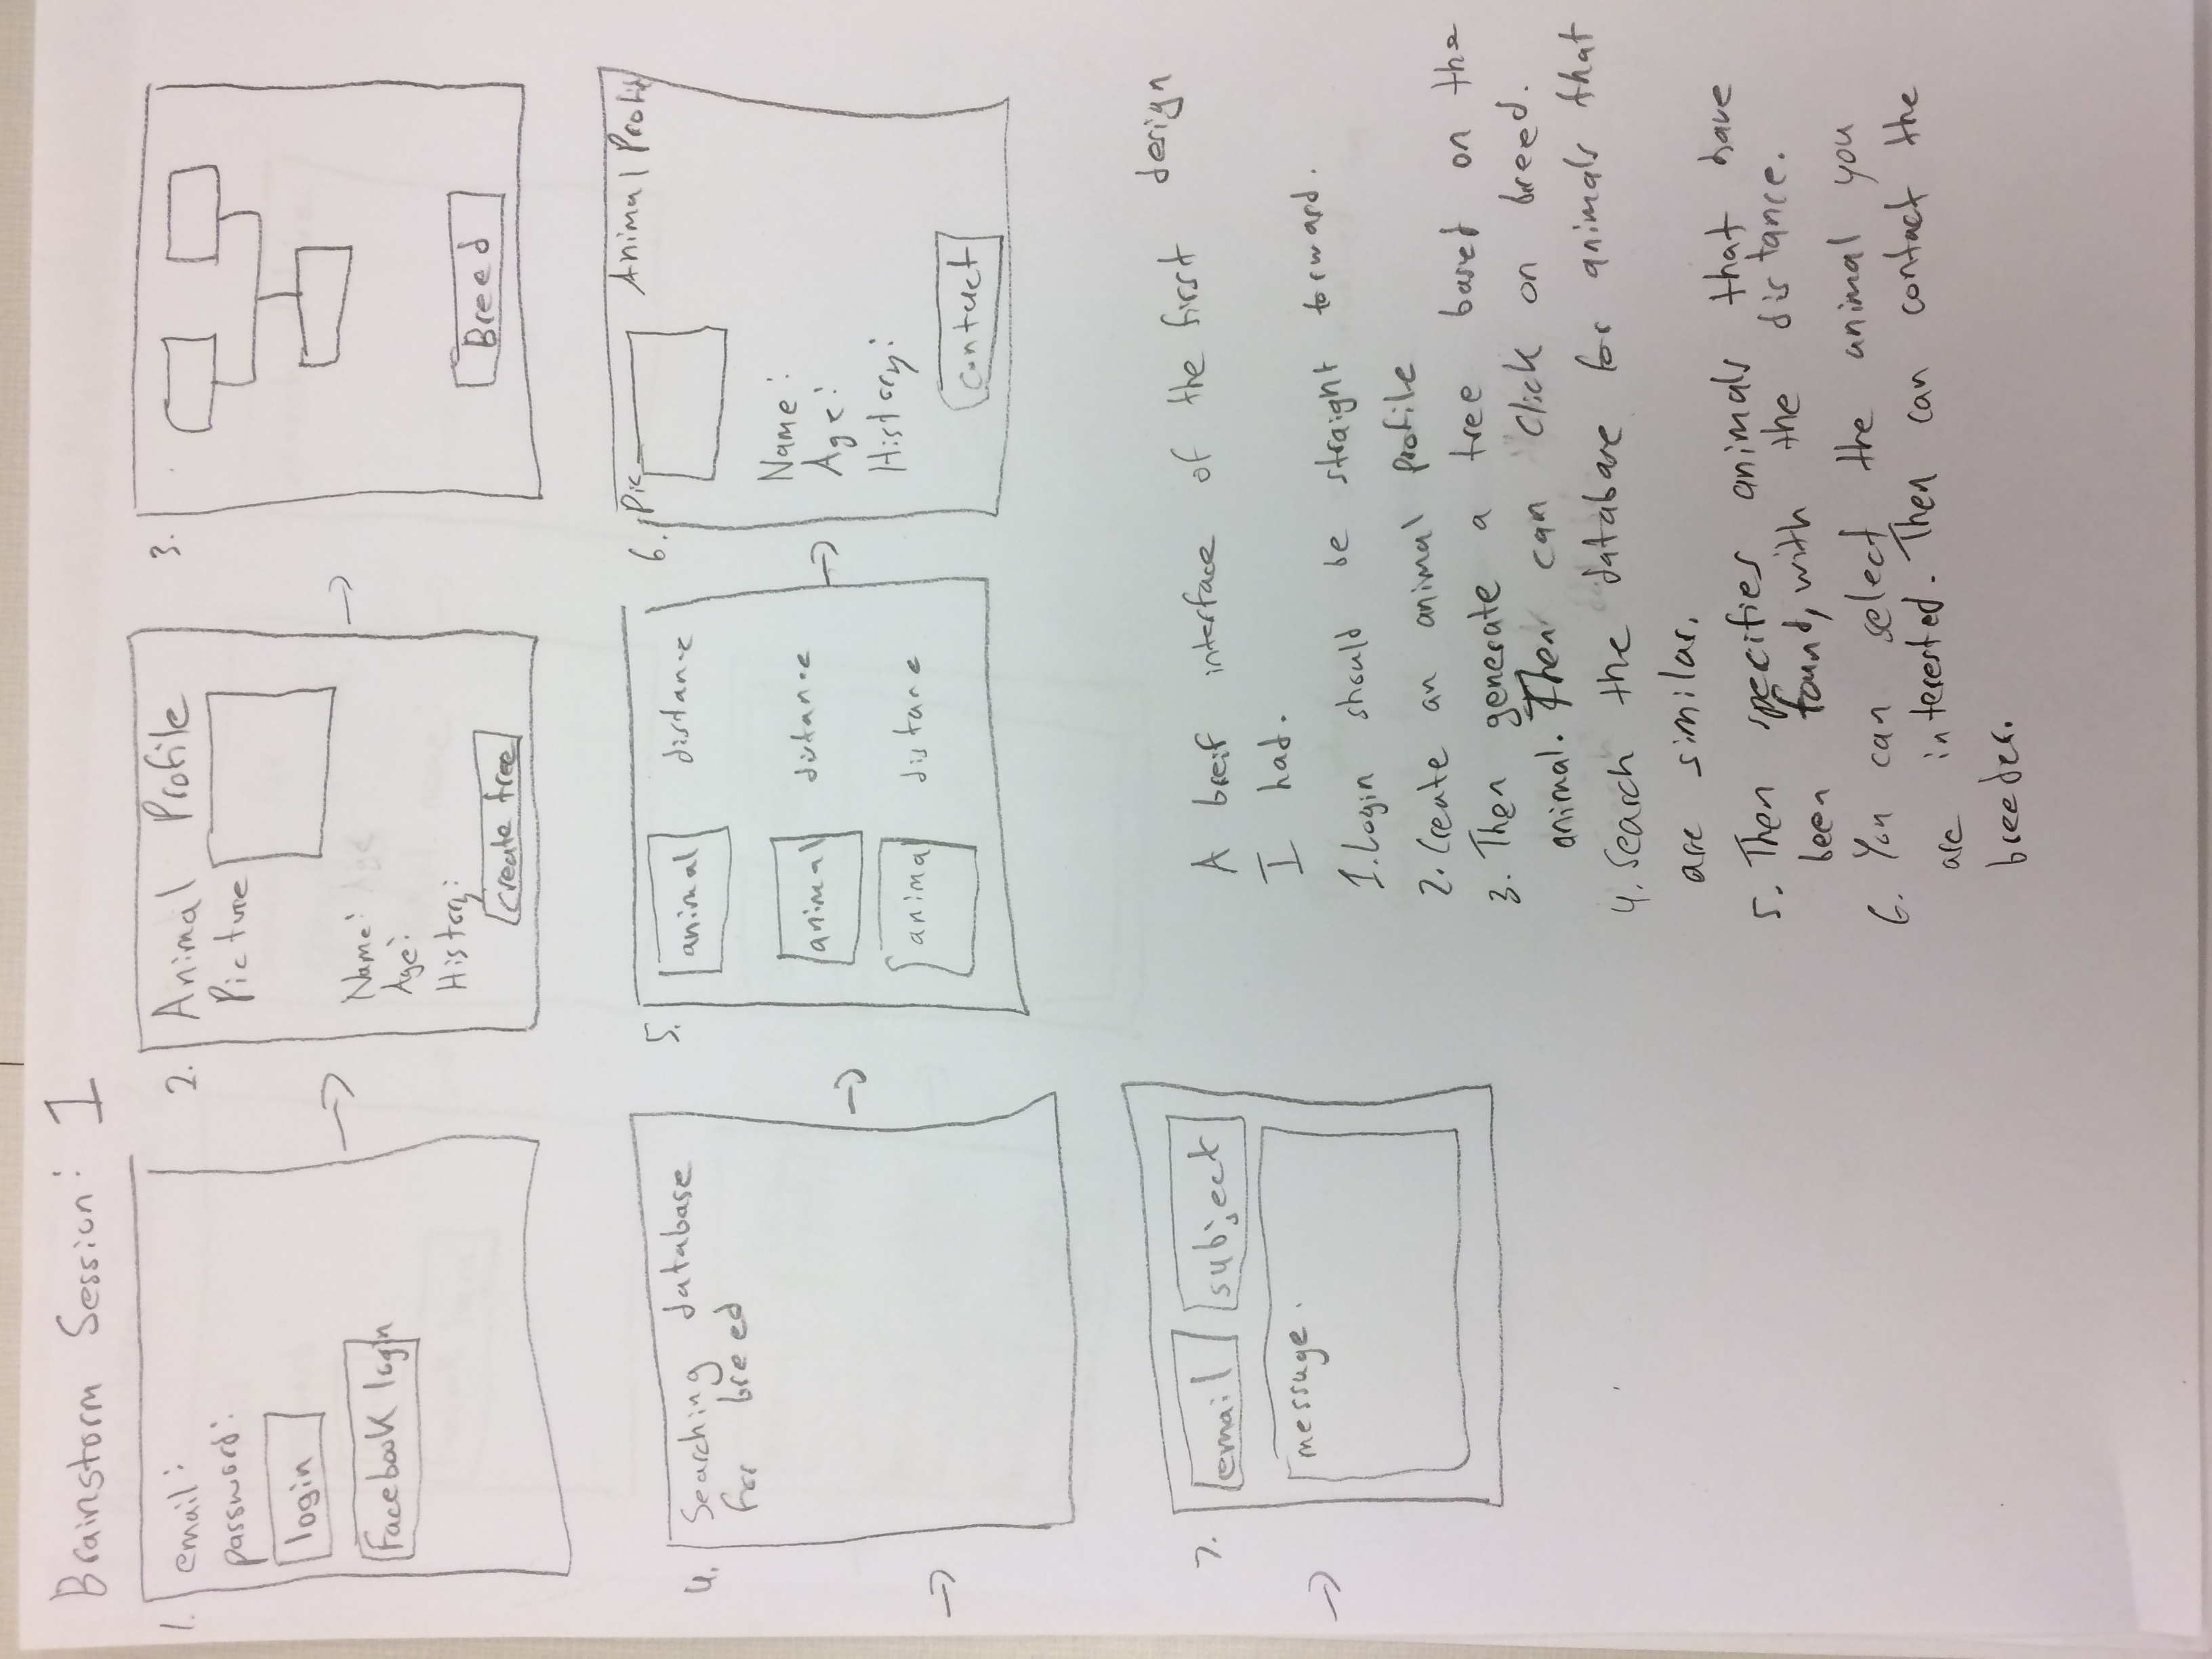 Brainstorm Session: 1
1.
email:
password:
login
Facebook login
2.
Animal Profile
Picture
Name:
Age:
History:
create tree
3.
Breed
4.
Searching database
for breed
5.
animal distance
animal distance
animal distane
6.
Pic Animal Profile
Name:
Age:
History:
contact
7.
email subject
message.
A breif interface of the first design
I had.
1. Login should be straight forward.
2. Create an animal profile
3. Then generate a tree based on the
animal. Then can click on breed.
4. Search the database for animals that
are similar.
5. Then specifies animals that have
been found, with the distance.
6. You can select the animal you
are interested. Then can contact the
breeder.